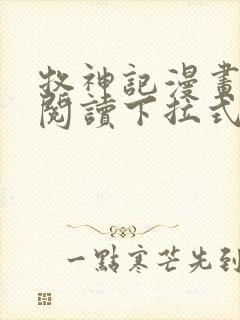 牧神記漫畫
閱讀下拉式
一點寒芒先到